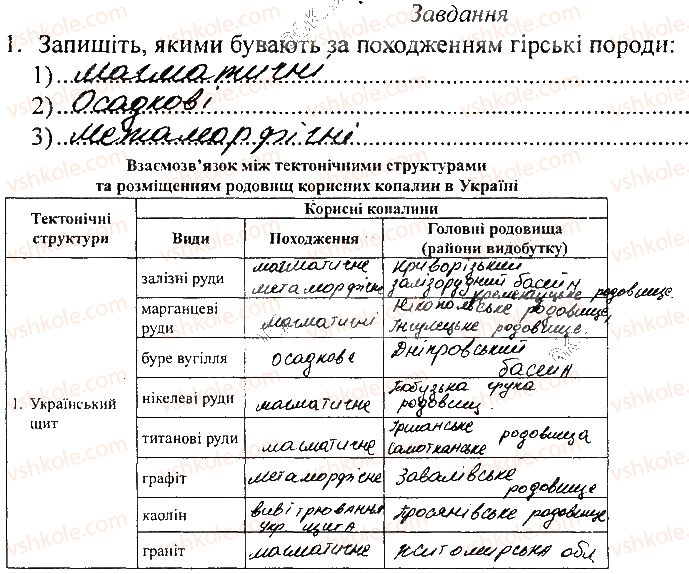 Завдання
1. Запишіть, якими бувають за походженням гірські породи:
1) магматичні
2) Осадкові
3) метаморфічні
Взаємозв'язок між тектонічними структурами
та розміщенням родовищ корисних копалин в Україні
Тектонічні структури
Корисні копалини
Види
Походження
Головні родовища (райони видобутку)
1. Український щит
залізні руди
магматичне
метаморфічне
Криворізький
залізорудний басейн
Кременчуцьке родовище.
марганцеві руди
магматичні
Нікопольське родовище,
Інгулецьке родовище.
буре вугілля
осадкове
Дніпровський
басейн
нікелеві руди
магматичне
Побузька група
родовищ.
титанові руди
магматичне
Іршанське
Самотканське родовища
графіт
метаморфічне
Завалівське
родовище
каолін
вивітрювання
укр. щита
Просянівське родовище.
граніт
магматичне
Житомирська обл
vshkole.com